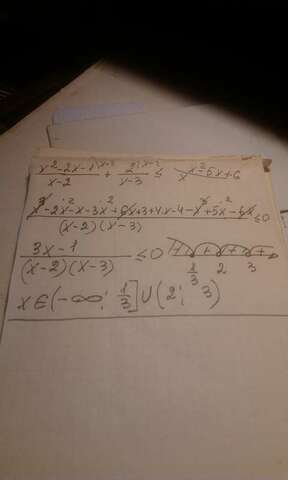 x²-2x-1\x-3 / x-2 + 2\x-2 / x-3 ≤ x²-5x+6
x³-2x²-x-3x²+6x+3+4x-4-x³+5x²-6x / (x-2)(x-3) ≤0
3x-1 / (x-2)(x-3) ≤0 - + - + 1/3 2 3
x∈(-∞; 1/3]∪(2; 3)